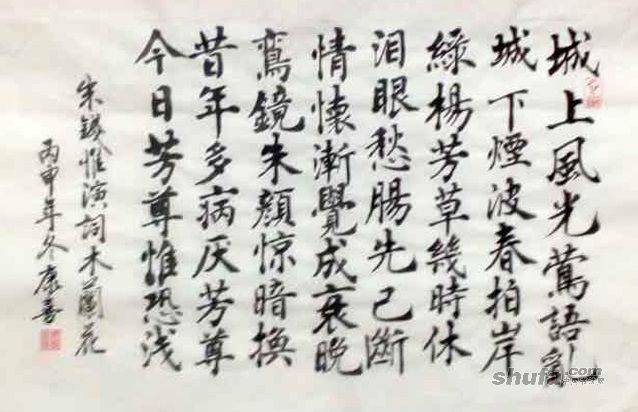 城上風光鶯語亂
城下煙波春拍岸
綠楊芳草幾時休
泪眼愁腸先已斷
情懷漸覺成衰晚
鸞鏡朱顏惊暗換
昔年多病厌芳尊
今日芳尊惟恐浅
朱錢惟演詞木蘭花
丙申年冬康喜
shufa.com